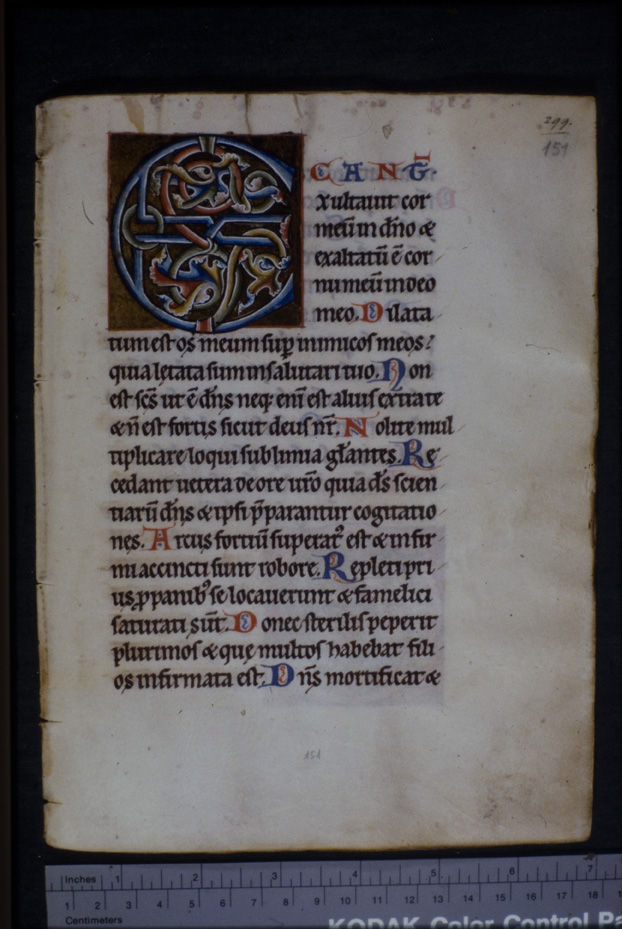 299.
151
E CANG̅
xultauit cor
meū in dn̄o &
exaltatū ē cor
nu meū in deo
meo. Dilata
tum est os meum sup̱ inimicos meos:
quia lętata sum in salutari tuo. Non
est scs̄ ut ē dn̄s neq; eni̅ est alius extra te
& n̄ est fortis sicut deus nr̄. Nolite mul
tiplicare loqui sublimia gl̄antes. Re
cedant uetera de ore ur̄o quia ds̄ scien
tiarū dn̄s & ipsi p̄parantur cogitatio
nes. Arcus fortiū superatˀ est & infir
mi accincti sunt robore. Repleti pri
us ꝓ panibˀ se locauerunt & famelici
saturati sūt. Donec sterilis peperit
plurimos & quę multos habebat fili
os infirmata est. Dn̄s mortificat &
151
Inches 1 2 3 4 5 6 7
1 2 3 4 5 6 7 8 9 10 11 12 13 14 15 16 17 18
Centimeters
KODAK Color Control Pa